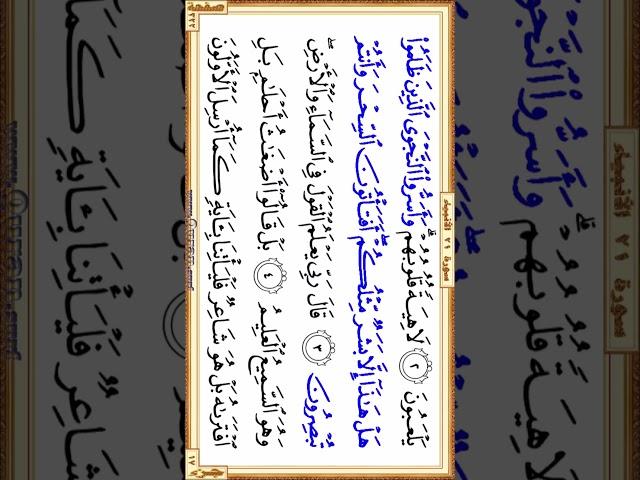 سورة ٢١ الأنبياء
يَلْعَبُونَ ٢ لَاهِيَةً قُلُوبُهُمْ ۗ وَأَسَرُّوا۟ ٱلنَّجْوَى ٱلَّذِينَ ظَلَمُوا۟
هَلْ هَـٰذَآ إِلَّا بَشَرٌ مِّثْلُكُمْ ۖ أَفَتَأْتُونَ ٱلسِّحْرَ وَأَنتُمْ
تُبْصِرُونَ ٣ قَالَ رَبِّى يَعْلَمُ ٱلْقَوْلَ فِى ٱلسَّمَآءِ وَٱلْأَرْضِ ۖ
وَهُوَ ٱلسَّمِيعُ ٱلْعَلِيمُ ٤ بَلْ قَالُوٓا۟ أَضْغَـٰثُ أَحْلَـٰمٍۭ بَلِ
ٱفْتَرَىٰهُ بَلْ هُوَ شَاعِرٌ فَلْيَأْتِنَا بِـَٔايَةٍ كَمَآ أُرْسِلَ ٱلْأَوَّلُونَ
١٧
٣٢٢